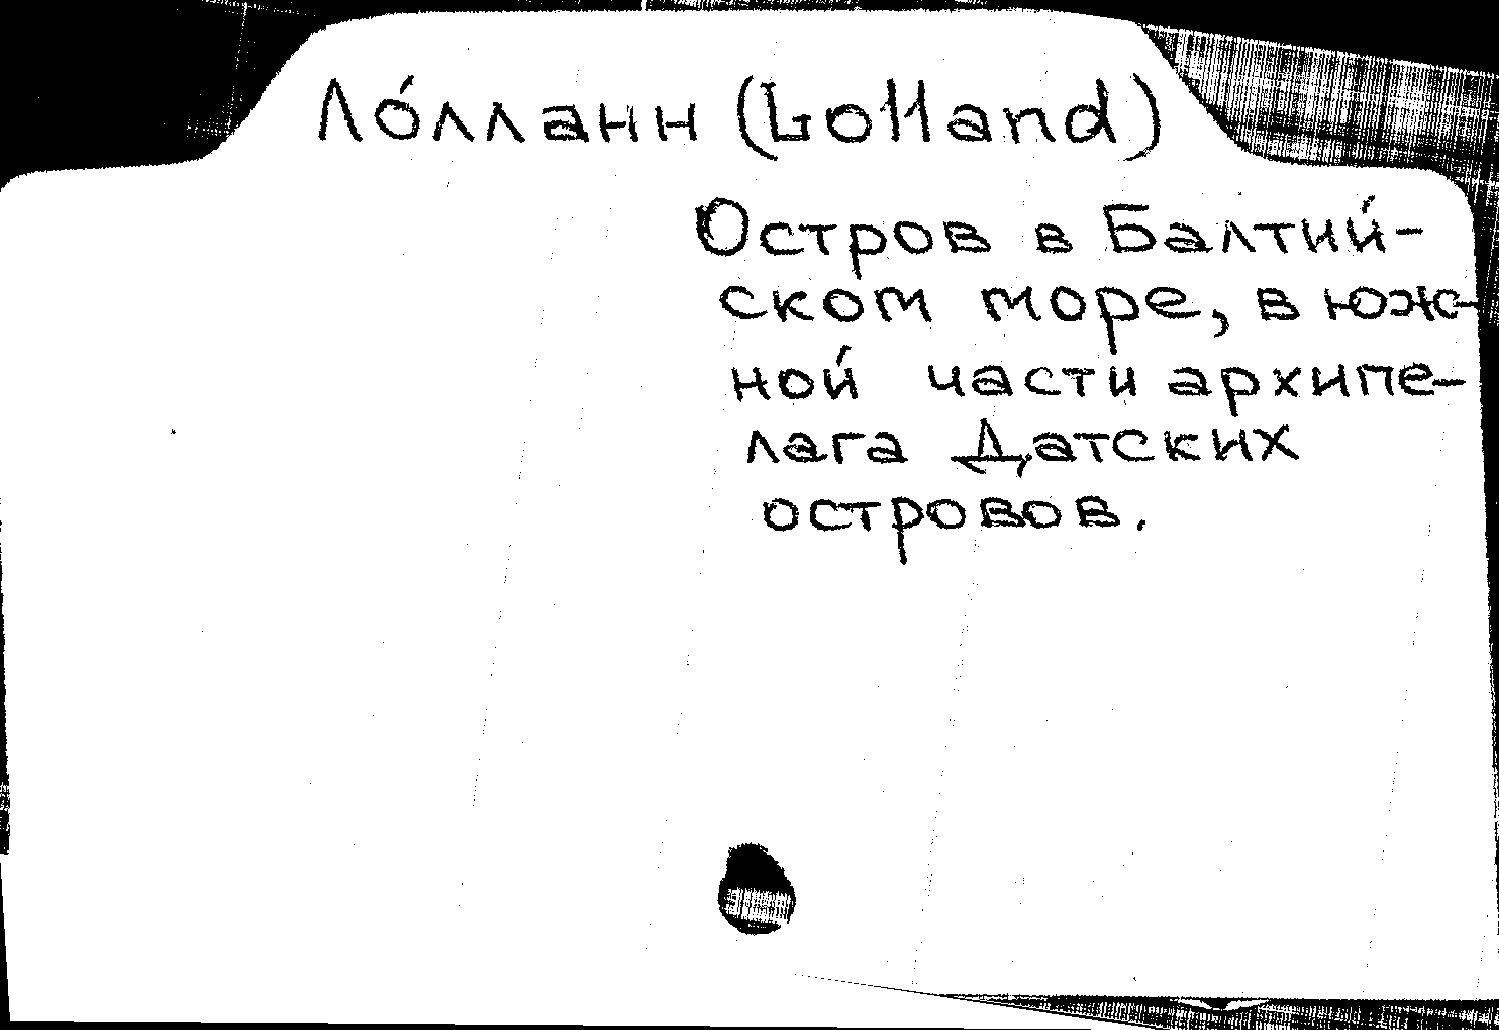 Ло́лланн (Lolland)
Остров в Балтий-
ском море, в юж-
ной части архипе-
лага Датских
островов.